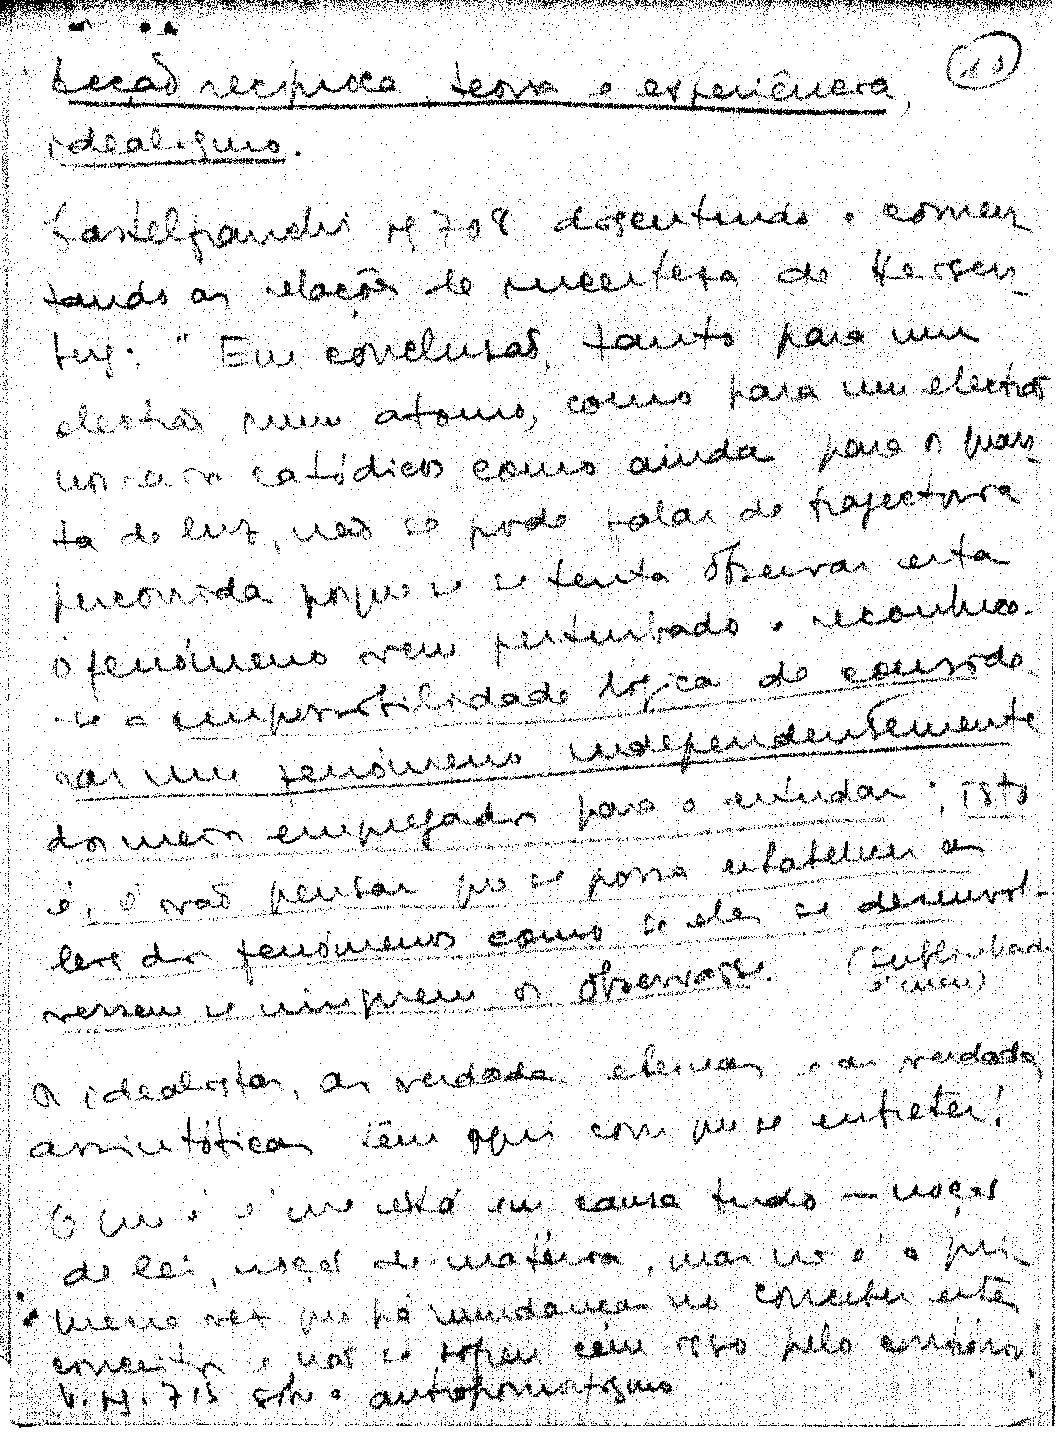 acção recíproca, teoria e experiência,
idealismo.
Castelfranchi pg 708 discutindo e comen-
tando as relações de incerteza de Heisen-
berg: "Em conclusão, tanto para um
electrão num atomo, como para um electrão
nos raios catódicos como ainda para o quan-
ta de luz, não se pode falar de trajectoria
percorrida porque se se tenta observar esta
o fenómeno vem perturbado e reconhece-
se a impossibilidade lógica de conside-
rar um fenómeno independentemente
dos meios empregados para o estudar; isto
é, é vão pensar que se possa estabelecer as
leis dos fenómenos como se eles se desenvol-
vessem se ninguem os observasse. (sublinhado
é meu)
Os idealistas, as verdades eternas e as verdades
assintóticas têm aqui com que se entreter!
O que é é que está em causa tudo — noção
de lei, noção de matéria, mas não é a pri-
meira vez que há mudanças no conceber estes
conceitos e não se
V. pg. 715 sobre o antropomorfismo